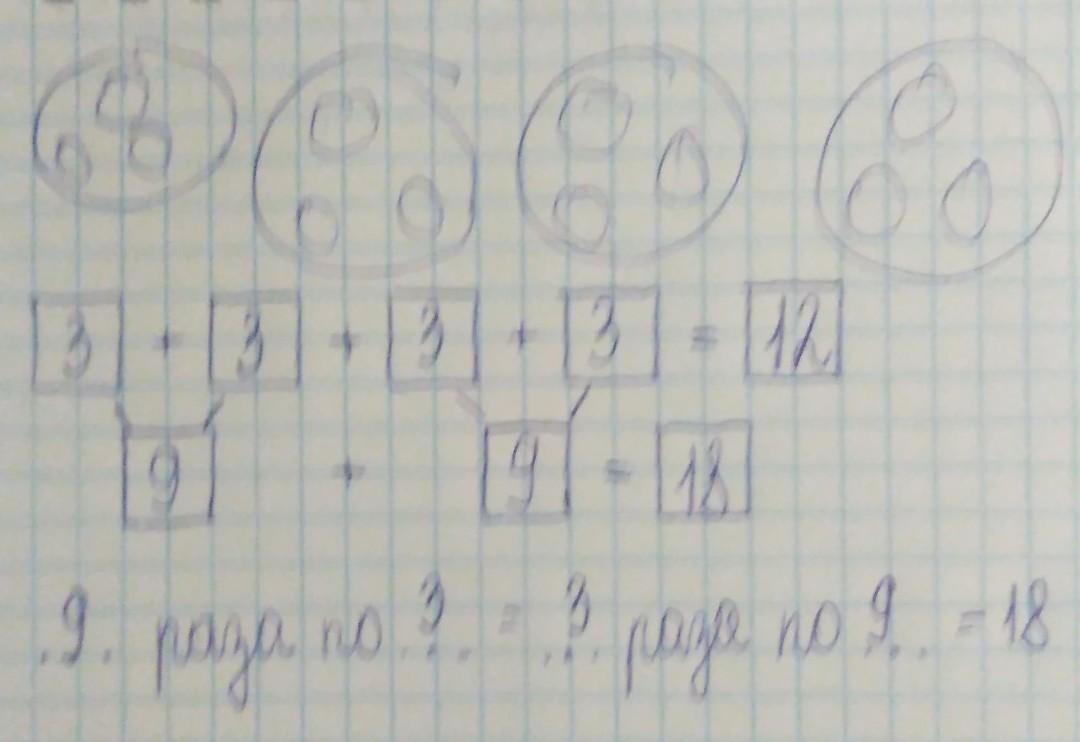 3 + 3 + 3 + 3 = 12
9 + 9 = 18
.9. раза по .3.. = .3.. раза по 9.. = 18